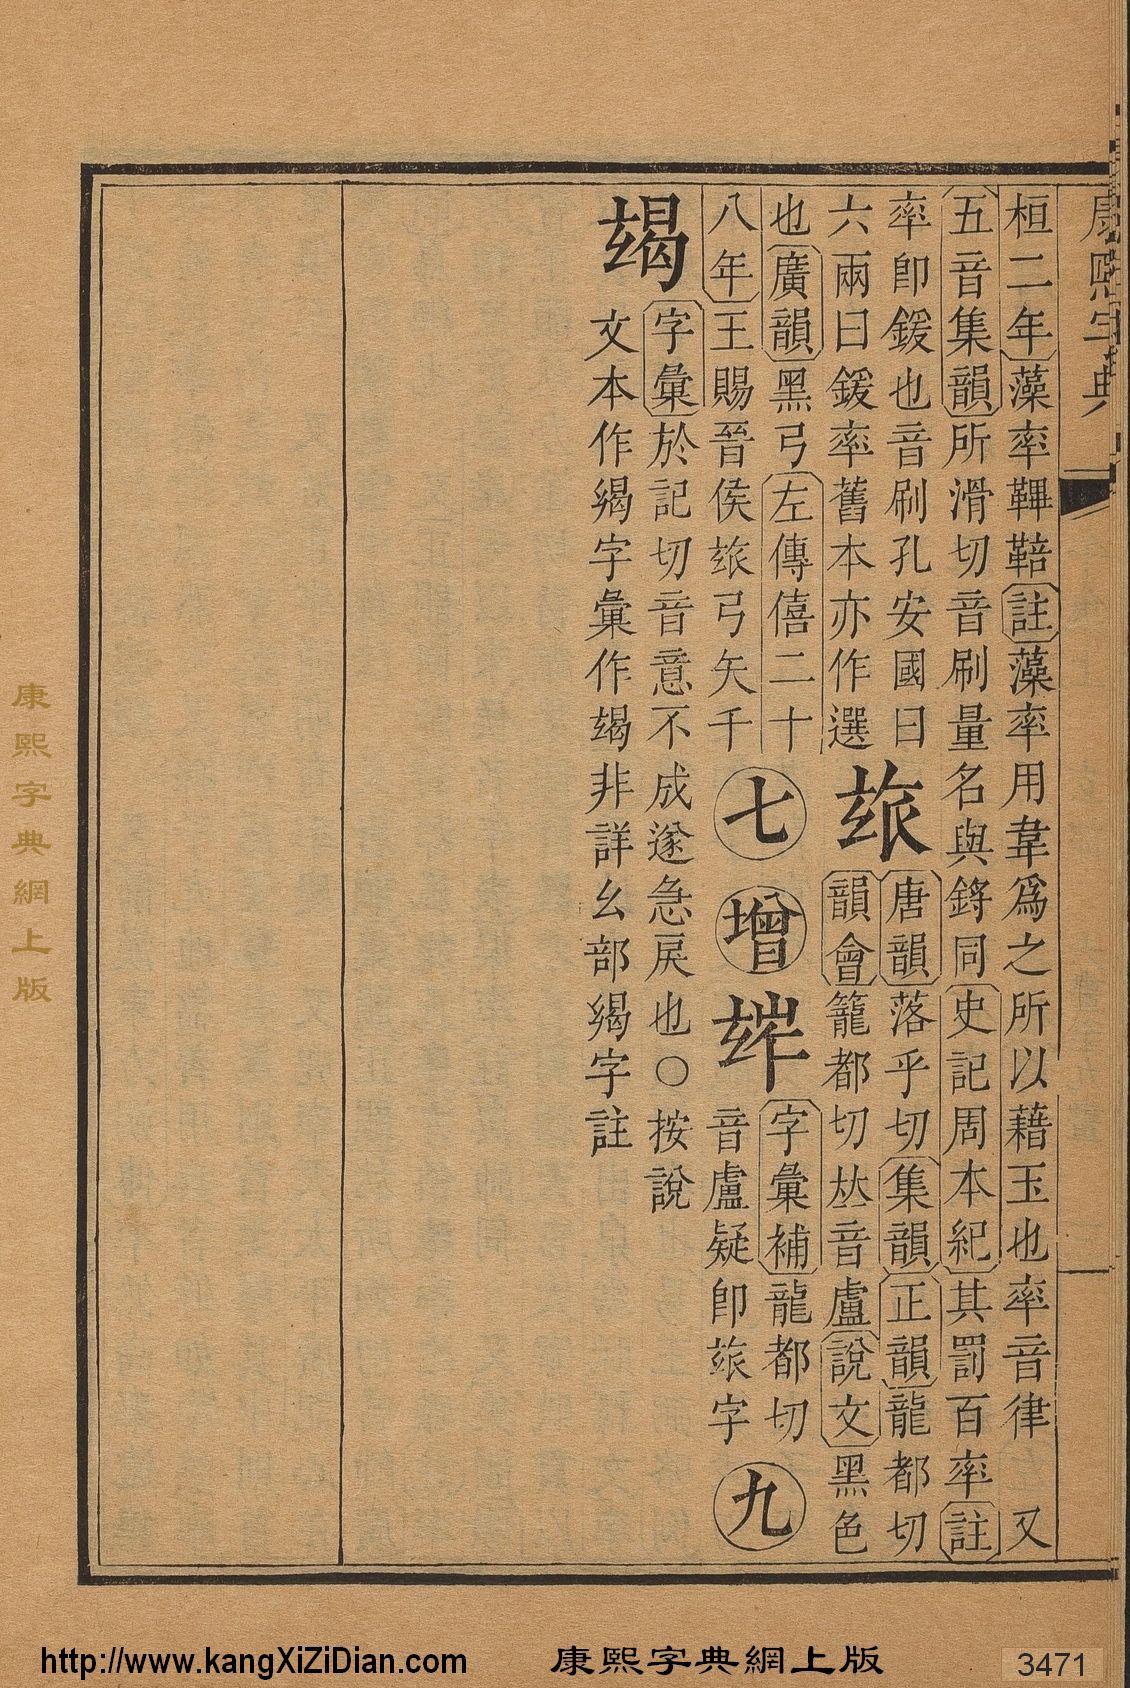 康熙字典
桓二年藻率鞸鞛註藻率用韋爲之所以藉玉也率音律 又
五音集韻所滑切音刷量名與鋝同史記周本紀其罰百率註
率卽鍰也音刷孔安國曰
六兩曰鍰率舊本亦作選
玈
唐韻落乎切集韻正韻龍都切
韻會籠都切𠀤音盧說文黑色
也廣韻黑弓左傳僖二十
八年王賜晉侯玈弓矢千
七
增
字彙補龍都切
音盧疑卽玈字
九
字彙於記切音意不成遂急戾也○按說
文本作䊠字彙作𤣎非詳幺部䊠字註
康熙字典網上版
http://www.kangXiZiDian.com
康熙字典網上版
3471